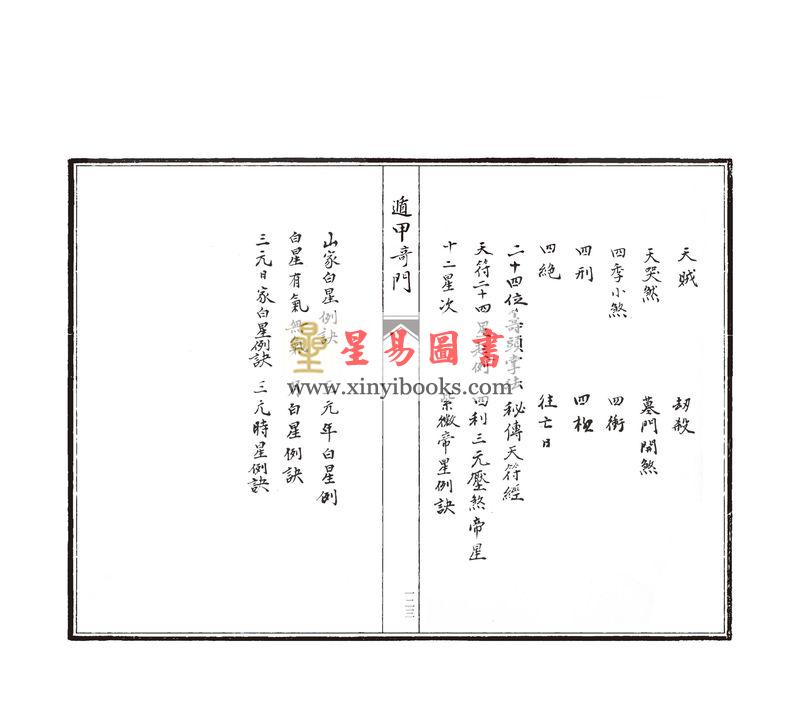 天賊 劫殺
天哭煞 墓門開煞
四季小煞 四衝
四刑 四極
四絕 往亡日
二十四位 頭掌法 秘傳天符經
天符二十四 例 四利三元壓煞帝星
十二星次 紫微帝星例訣
遁甲奇門
一二三
山家白星例訣 元年白星例
白星有氣無氣 月白星例訣
三元日家白星例訣 三元時星例訣
星易圖書
www.xinyibooks.com